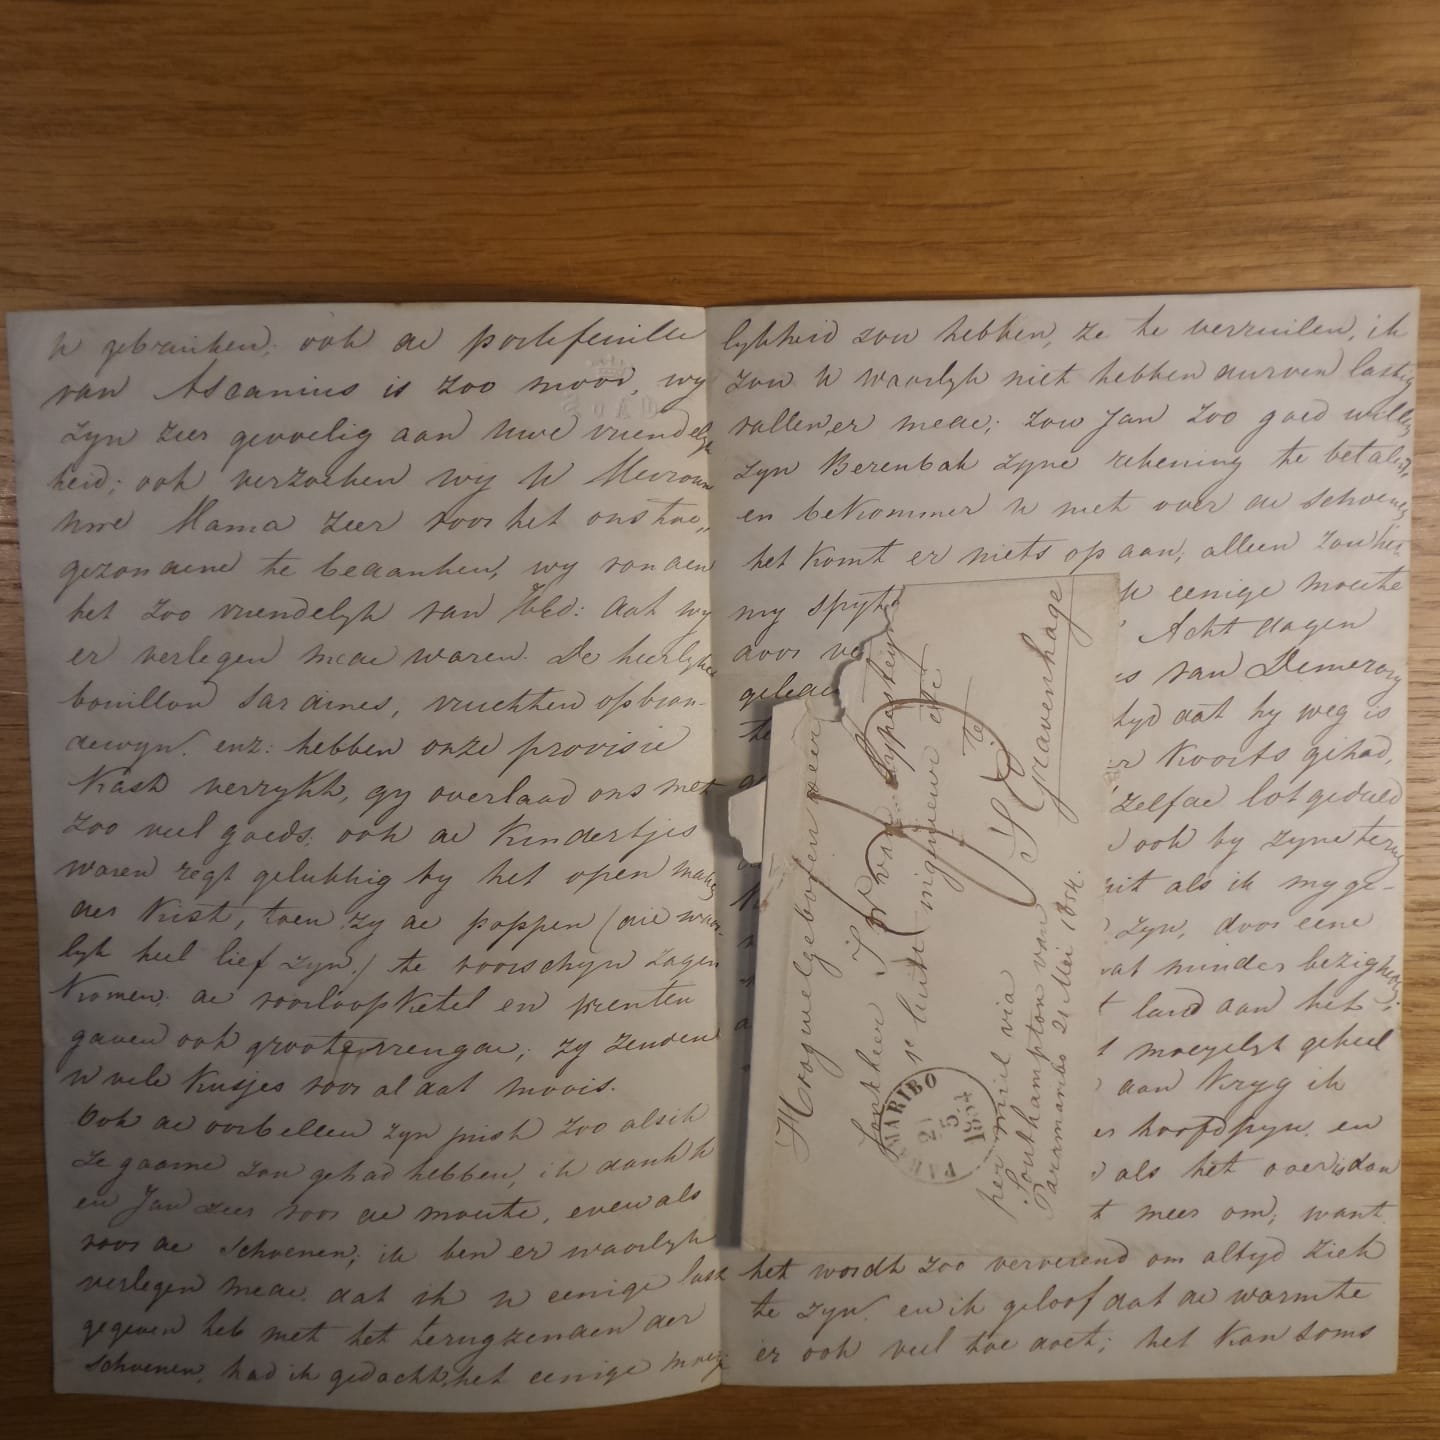 U gebruiken; ook de portefeuille
van Ascanius is zoo mooi, wy
zyn zeer gevoelig aan Uwe vriendelyk
heid; ook verzoeken wy U Mevrouw
Uwe Mama zeer voor het ons toe„
gezondene te bedanken, wy vonden
het zoo vriendelyk van HEd: dat wy
er verlegen mede waren. De heerlyke
bouillon Sardines, vruchten op bran-
dewyn. enz: hebben onze provisie
Kast verrykt, gy overlaad ons met
zoo veel goeds. ook de Kindertjes
waren regt gelukkig by het open maken
der Kist, toen zy de poppen (die waar-
lyk heel lief zyn.) te voorschyn zagen
Komen. de en prenten
gaven ook groote vreugde; zy zenden
U vele Kusjes voor al dat moois.
Ook de oorbellen zyn juist zoo als ik
ze gaarne zou gehad hebben, ik dank U
en Jan zeer voor de moeite, even als
voor de Schoenen; ik ben er waarlyk
verlegen mede. dat ik U eenige last
gegeven heb met het terugzenden der
Schoenen, had ik gedacht, het eenige moeije
lykheid zou hebben, ze te verruilen, ik
zou U waarlyk niet hebben durven lastig
vallen er mede; zou Jan zoo goed willen
zyn Berenbak zyne rekening te betalen,
en bekommer U niet over de schoenen
het Komt er niets op aan; alleen zou het
my spyten U eenige moeite
door Acht dagen
geleden van Demerary
tyd dat hy weg is
Koorts gehad,
zelfde lot geduld
ook by zyne terug
uit als ik my ge-
zyn, door eene
wat minder bezigheden;
land aan het
mogelyk geheel
dan Kryg ik
hoofdpyn. en
als het over is dan
meer om; want
het wordt zoo vervelend om altyd Ziek
te zyn. en ik geloof dat de warmte
er ook veel toe doet; het Kan soms
Hoogwelgeboren Heer
Jonkheer van Sypesteyn
Luit: ingenieur etc
Te
S'Gravenhage
per mail via
Southampton van
Paramaribo 21 Mei 1854.
PARAMARIBO
21
5
1854